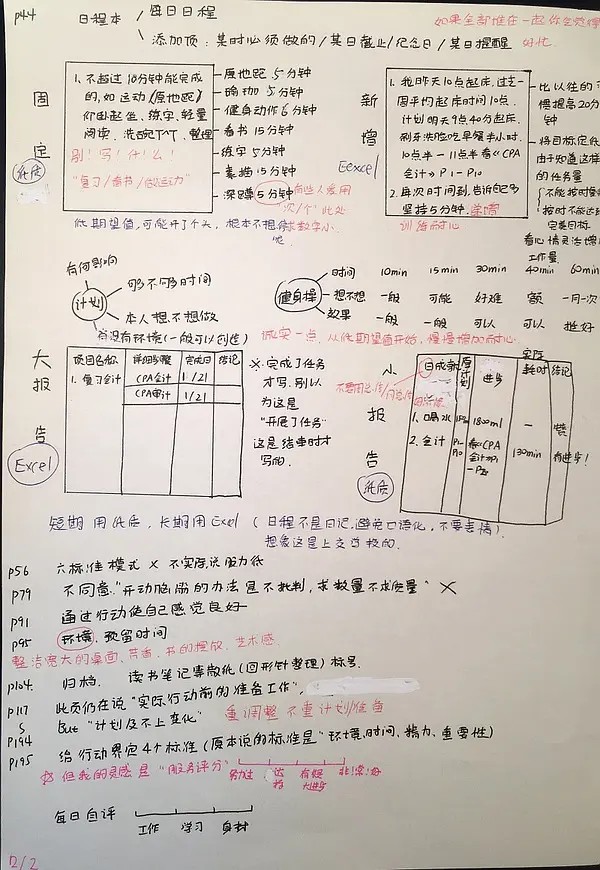 p44 日程本 / 每日日程
添加项：某时必须做的/某日截止/纪念日/某日提醒
如果全部堆在一起你会觉得好忙
固定
纸质
1. 不超过10分钟能完成的，如运动(原地跑、仰卧起坐、练字、轻量阅读、洗碗、整理
别！写！什！么！
"复习/看书/做运动"
原地跑 5分钟
瑜珈 5分钟
健身动作 6分钟
看书 15分钟
练字 5分钟
素描 15分钟
深蹲 5分钟
有些人爱用"次/个"此处求数字小
低期望值，可能开了个头，根本不想停呢
新增
Eexcel
1. 我昨天10点起床，过去一周平均起床时间10点，计划明天9点40分起床，刷牙洗脸吃早餐半小时，10点半－11点半看《CPA会计》P1－P10
2. 每次时间到，告诉自己多坚持5分钟
训练耐心
比以往的习惯提高20分钟
将目标定低由于知道这样的任务量
不能按时
按时不能达到完美目标
看心情灵活增加工作量
有何影响
计划
够不够时间
本人想不想做
有没有环境(一般可以创造)
健身操
时间 10min 15min 30min 40min 60min
想不想 一般 可能 好难 一月一次
效果 一般 一般 可以 可以 挺好
诚实一点，从低期望值开始，慢慢增加耐心
大报告
Excel
项目名称 详细步骤 完成日 结论
1. 复习会计 CPA会计 1/21
CPA审计 1/21
※ 完成了任务才写，别以为这是"开展了任务"这是结束时才写的。
小报告
纸质
日成录 原计划 进步 实际耗时 结论
1. 喝水 1800ml －
2. 会计 P1-P10 看《CPA会计》P1－P20 130min 有进步！
短期用纸质，长期用Excel (日程不是日记，避免口语化，不要表情)
想象这是上交学校的.
p56 六标准模式 × 不实际，说服力低
p79 不同意."开动脑筋的办法是不批判，求数量不求质量" ×
p91 通过行动使自己感觉良好
p95 环境，预留时间
整洁宽大的桌面、芳香、书的摆放、艺术感
p104. 归档. 读书笔记集散纸(回形针整理)标号.
p117 此页仍在说"实际行动前的准备工作"，
S But "计划及不上变化" 重调整 不重计划/准备
p194
p195 给行动界定4个标准(原本说的标准是"环境、时间、精力、重要性)
但我的灵感是"服务评分" 努力过 达标 有较大进步 非！常！好
每日自评 工作 学习 身材
2/2